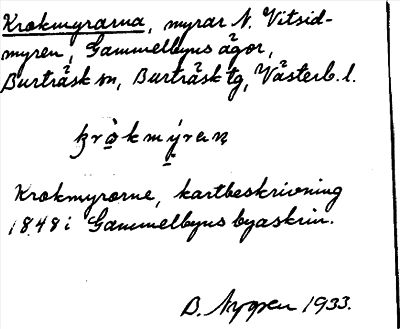 Krokmyrarna, myrar N. Vitsid-
myren, Gammelbyns ägor,
Burträsk sn, Burträsk tg, Västerb. l.
kròkmýran
Krokmyrorne, kartbeskrivning
1848 i Gammelbyns byaskrin.
B. Nygren 1933.